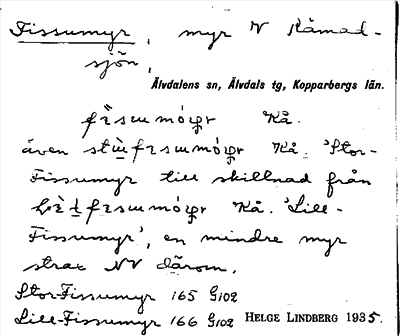 Fissumyr, myr N Råmad-
sjön,
Älvdalens sn, Älvdals tg, Kopparbergs län.
Kå.
även Kå. 'Stor-
Fissumyr till skillnad från
Kå. 'Lill-
Fissumyr', en mindre myr
strax NV därom.
Stor-Fissumyr 165 G102
Lill-Fissumyr 166 G102 HELGE LINDBERG 1935.